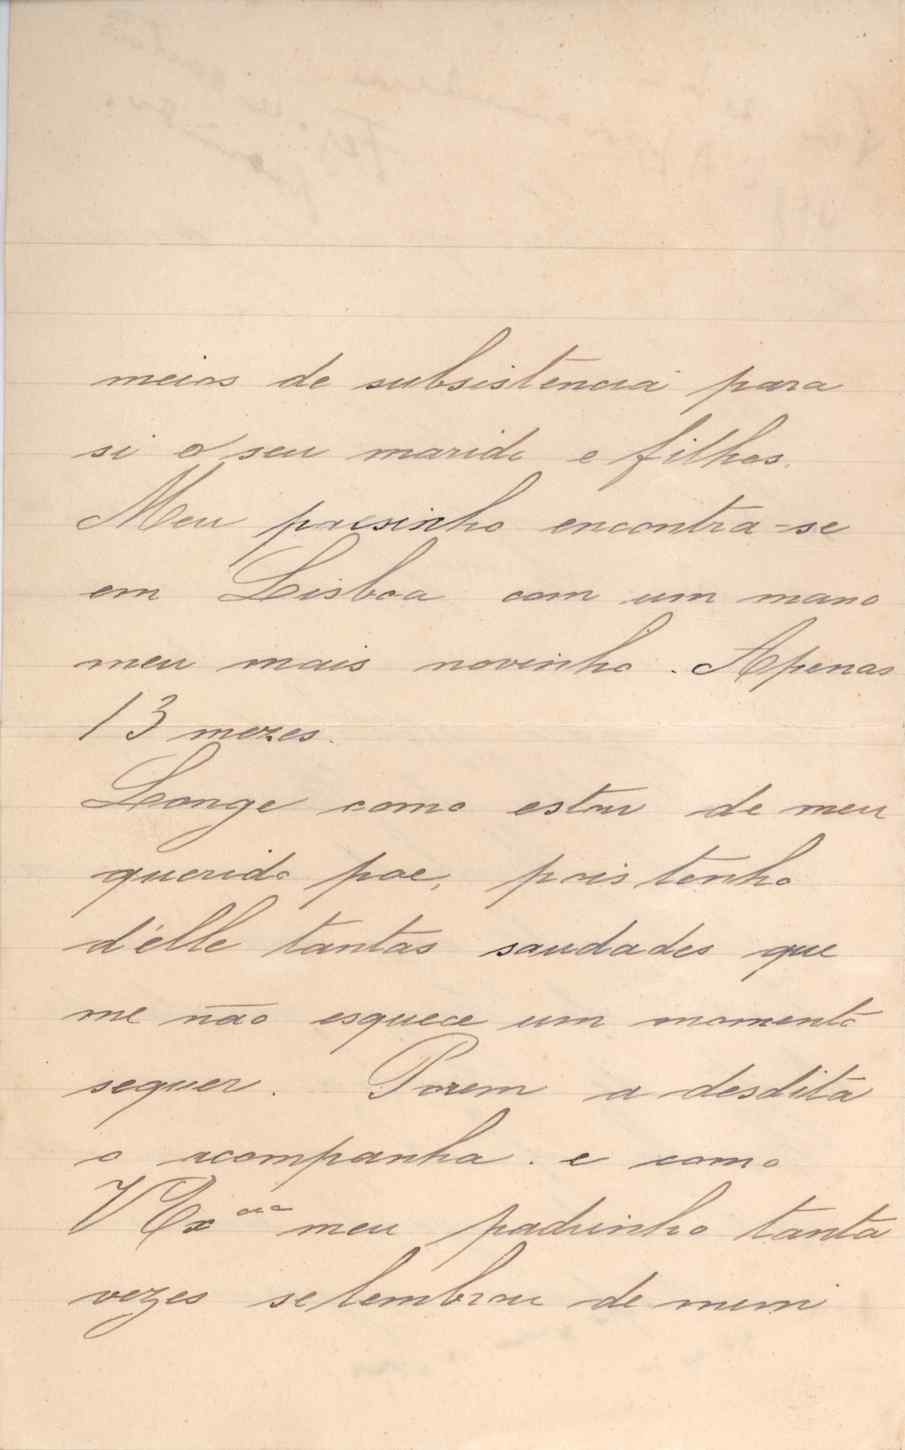 meios de subsistencia para
si e seu marido e filhos.
Meu paesinho encontra-se
em Lisboa com um mano
meu mais novinho. Apenas
13 mezes.
Longe como estou de meu
querido pae, pois tenho
d'elle tantas saudades que
me não esquece um momento
sequer. Porem a desdita
o acompanha. e como
V Ex.cia meu padrinho tanta
vezes se lembrou de mim